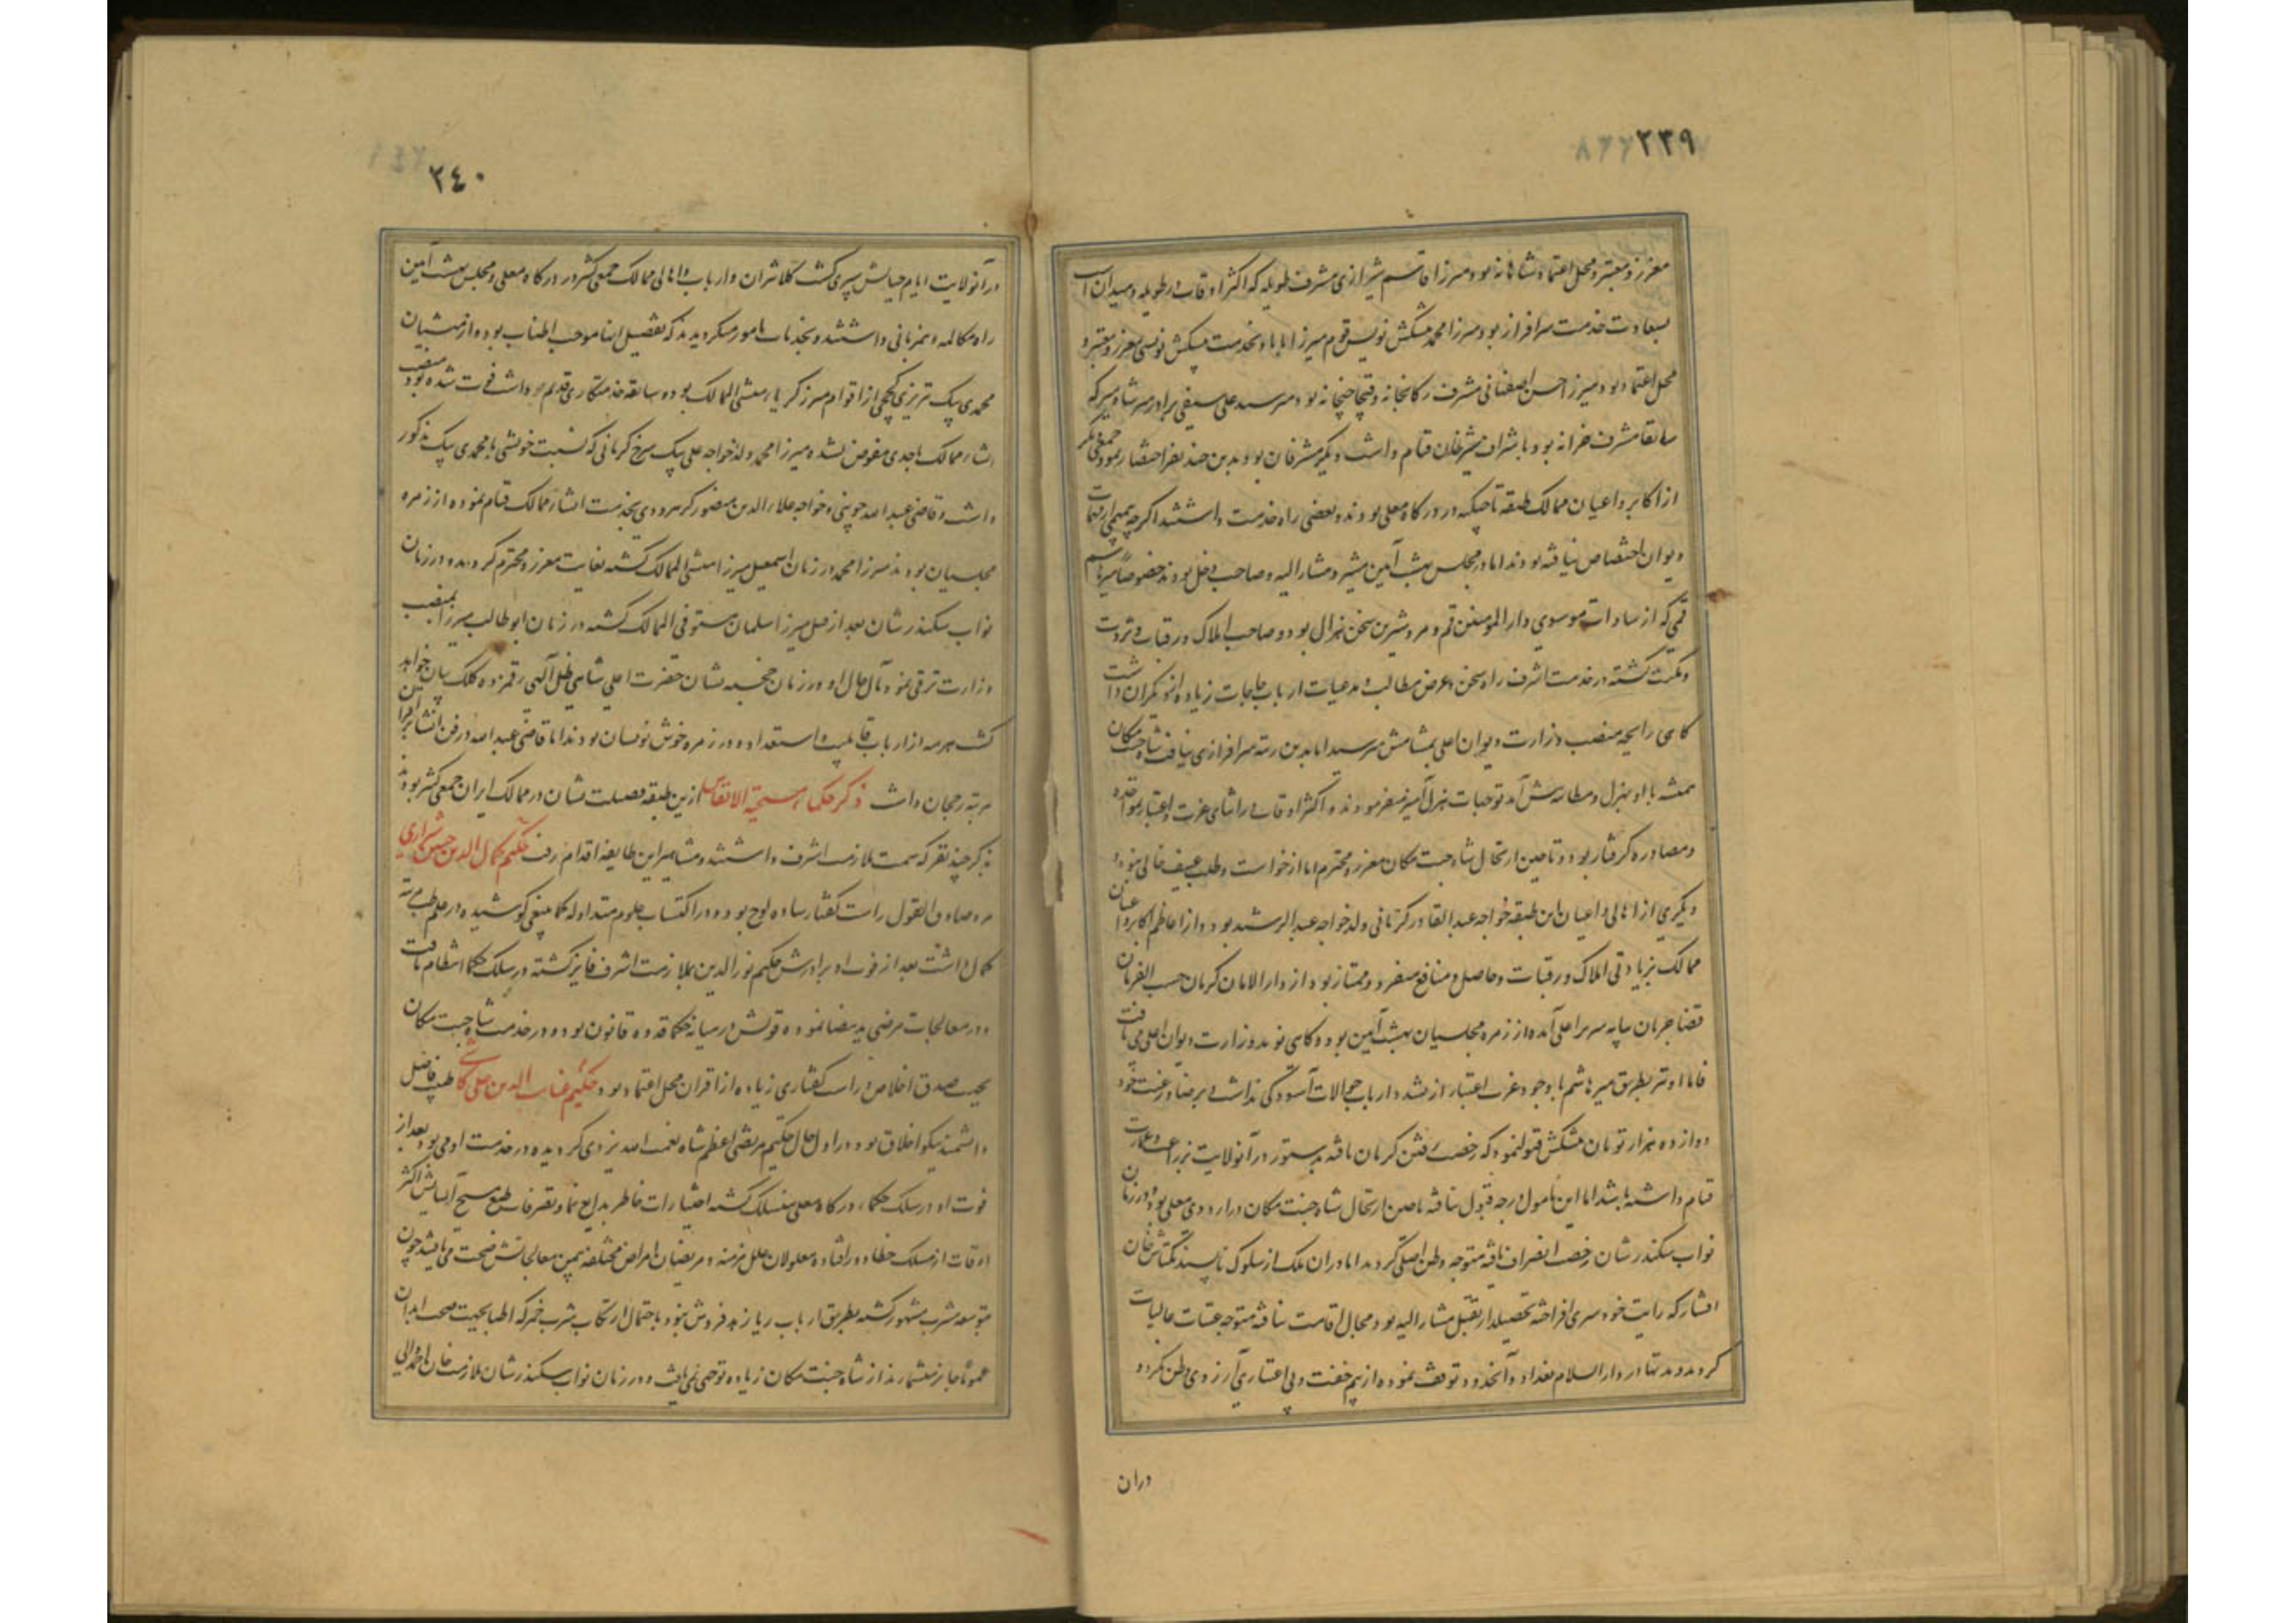 ۲۳۹
معزز و معتبر و محل اعتماد شاهانه بود و میرزا قاسم شیرازی مشرف طویله که اکثر اوقات در طویله و میدان اسب
بسعادت خدمت سرافراز بود و میرزا محمد پیشکش نویس قوم میرزا بابا و بخدمت پیشکش نویسی معزز و معتبر و
محل اعتماد بود و میرزا حسن اصفهانی مشرف رکابخانه و قیچاجیخانه بود و میر سید علی سیفی برادر میر شاه میر که
سابقا مشرف خزانه بود باشراف قیام داشت دیگر مشرفان بود بدین چند نفر اختصار نمود جمعی دیگر
از اکابر و اعیان ممالک طبقه تاجیکیه در درگاه معلی بودند و بعضی راه خدمت داشتند اگرچه بمهمی از مهمات
دیوان اختصاص نیافته بودند اما در مجلس بهشت آیین مشیر و مشار الیه و صاحب دخل بودند خصوصا میر هاشم
قمی که از سادات موسوی دار المؤمنین قم و مرد شیرین سخن هزال بود و صاحب املاک و رقبات و ثروت
و مکنت گشته در خدمت اشرف راه سخن و عرض مطالب و مدعیات ارباب حاجات زیاده از دیگران داشت
گاهی رایحه منصب وزارت دیوان اعلی بمشامش میرسید اما بدین رتبه سرافرازی نیافت شاه جنت مکان
همیشه با او بهزل و مطایبه پیش آمد توجهات هزل آمیز میفرمودند و اکثر اوقات در اثنای عزت و اعتبار بمؤاخذه
و مصادره گرفتار بود و تا حین ارتحال شاه جنت مکان معزز و محترم اما از خواست و طلب عنیف خالی نبود و
دیگری از اهالی و اعیان این طبقه خواجه عبد القادر کرمانی ولد خواجه عبد الرشید بود و از اعاظم اکابر و اعیان
ممالک بزیادتی املاک و رقبات و حاصل و منافع منفرد و ممتاز بود از دار الامان کرمان حسب الفرمان
قضا جریان بپایه سریر اعلی آمده از زمره مجلسیان بهشت آیین بود و گاهی نوید وزارت دیوان اعلی می یافت
فاما او نیز بطریق میر هاشم با وجود عزت و اعتبار از تشدد ارباب حوالات آسودگی نداشت و برضا و رغبت خود
دوازده هزار تومان پیشکش قبول نمود که رخصت رفتن کرمان یافته بدستور در آنولایت بزراعت و عمارت
قیام داشته باشد اما این مامول درجه قبول نیافته تا حین ارتحال شاه جنت مکان در اردوی معلی بود و در زمان
نواب سکندر شان رخصت انصراف یافته متوجه وطن اصلی گردید اما در آن ملک از سلوک ناپسند بکتاش خان
افشار که رایت خودسری افراخته تحصیلدار تقبل مشار الیه بود مجال اقامت نیافته متوجه عتبات عالیات
گردید و مدتها در دار السلام بغداد و آنحدود توقف نموده از بیم خفت و بی اعتباری آرزوی وطن نکرد و
دران
۲۴۰
در آنولایت ایام حیاتش سپری گشت کلانتران و ارباب و اهالی ممالک جمعی کثیر در درگاه معلی و مجلس بهشت آیین
راه مکالمه و همزبانی داشتند و بخدمات مامور میگردیدند که تفصیل اینها موجب اطناب بود و از منشیان
محمدی بیک تبریزی از اقوام میرزا کریا منشی الممالک بود و سابقه خدمتکاری قدیم داشت فوت شده بود و منصب
انشاء ممالک باحدی مفوض نشده میرزا محمد ولد خواجه علی بیک سرخ کرمانی که نسبت خویشی با محمدی بیک مذکور
داشت و قاضی عبد الله خویی و خواجه علاء الدین منصور کرهرودی بخدمت انشاء ممالک قیام نموده از زمره
مجلسیان بودند میرزا محمد در زمان اسمعیل میرزا منشی الممالک گشته بغایت معزز و محترم گردید و در زمان
نواب سکندر شان بعد از قتل میرزا سلمان مستوفی الممالک گشته در زمان ابو طالب میرزا بمنصب
وزارت ترقی نمود و مآل حال او در زمان خجسته نشان حضرت اعلی شاهی ظل الهی رقمزده کلک بیان خواهد
گشت هر سه از ارباب قابلیت و استعداد و در زمره خوش نویسان بودند اما قاضی عبد الله در فن انشا برین اقران
مرتبه رجحان داشت ذکر حکماء مسیحیة الانفاس ازین طبقه فضیلت نشان در ممالک ایران جمعی کثیر بودند
بذکر چند نفر که سمت ملازمت اشرف داشتند و مشاهیر این طایفه اقدام رفت حکیم کمال الدین حسین شیرازی
مرد صادق القول راست گفتار ساده لوح بود و در اکتساب علوم متداوله کما ینبغی کوشیده در علم طب مرتبه
کمال داشت بعد از فوت او برادرش حکیم نور الدین بملازمت اشرف فایز گشته در سلک حکما انتظام یافت
و در معالجات مرضی ید بیضا نموده قولش در میانه حکما قدوه قانون بود و در خدمت شاه جنت مکان
بجهت صدق اخلاص و راست گفتاری زیاده از اقران محل اعتماد بود و حکیم غیاث الدین علی کاشی طبیب فاضل
دانشمند نیکو اخلاق بود و در اول حال حکیم مرتضی اعظم شاه نعمت الله یزدی گردیده در خدمت او می بود بعد از
فوت او در سلک حکماء درگاه معلی منسلک گشته اختیارات خاطر بدایع نما و تصرفات طبع مسیح آسایش اکثر
اوقات از مسلک خطا دور افتاده معلولان علل مزمنه و مریضان امراض مختلفه بیمن معالجاتش صحت می یافتند چون
بتوسعه مشرب مشهور گشته بطریق ارباب ریا زهد فروش نبود باحتمال ارتکاب شرب خمر که اطبا بجهت صحت ابدان
عموما جایز میشمارند از شاه جنت مکان زیاده توجهی نمی یافت و در زمان نواب سکندر شان ملازمت خان احمد والی